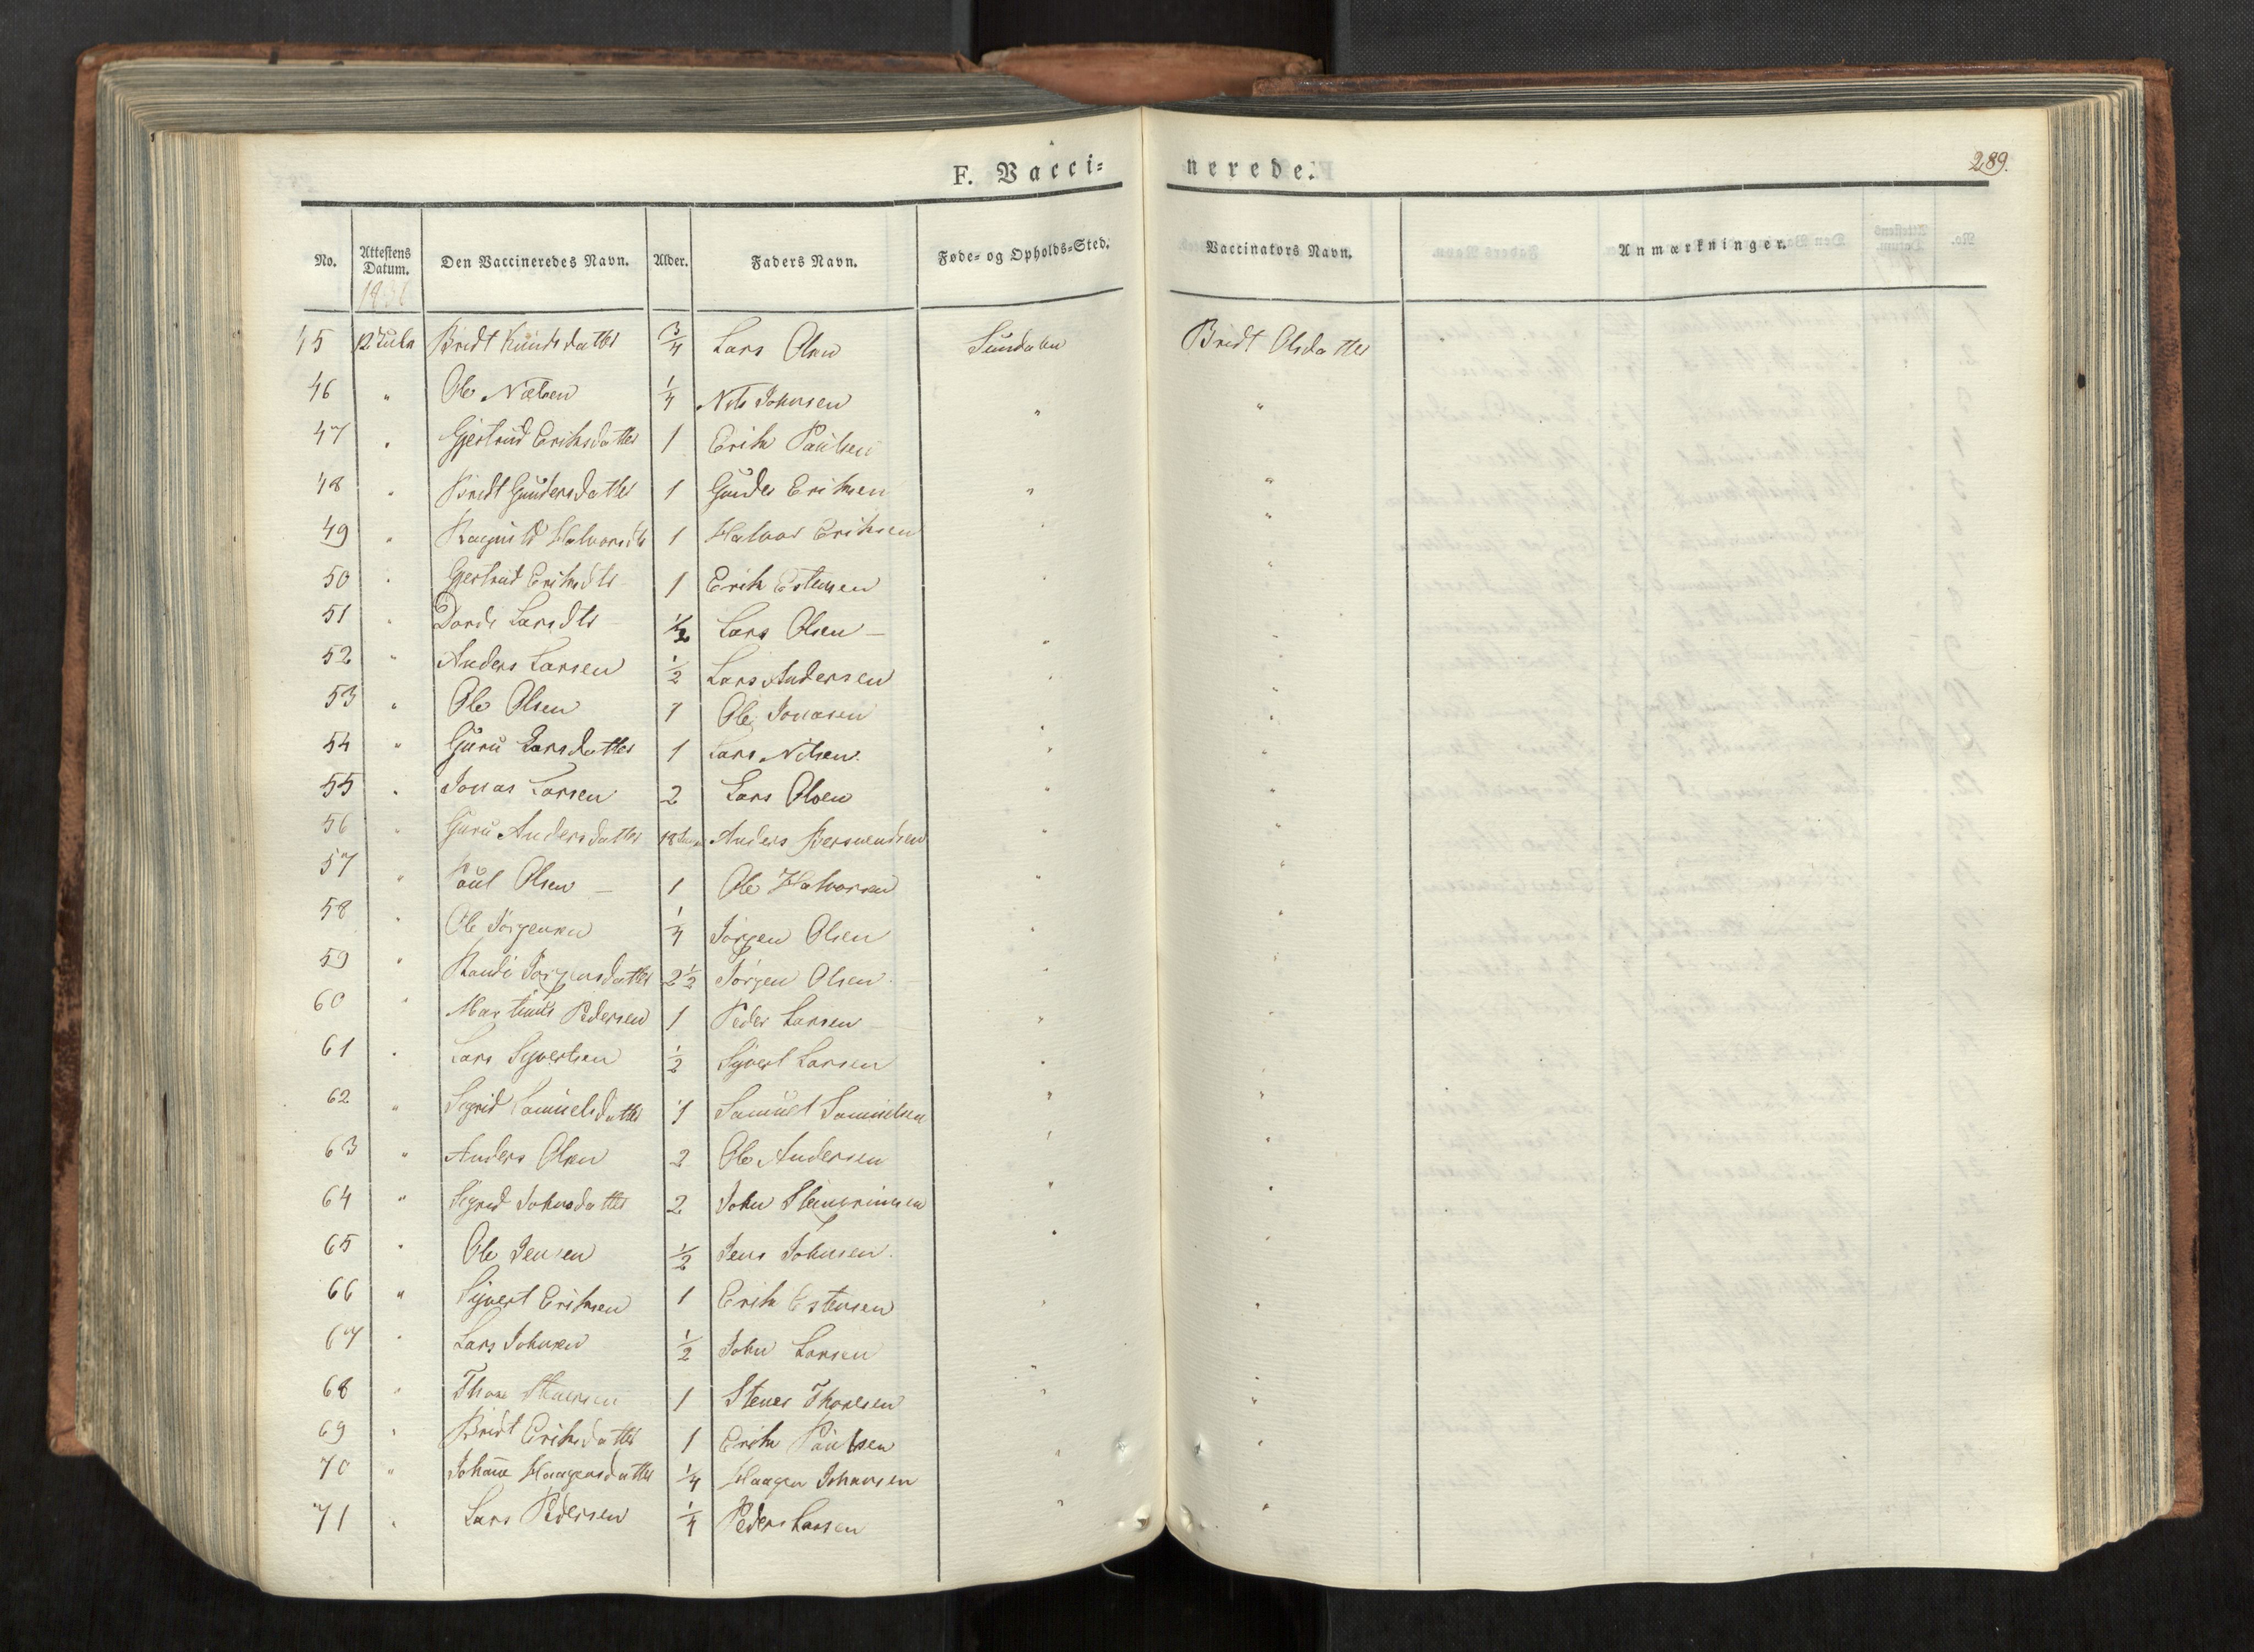 F. Vacci= nerede. 289.
No. Attestens Datum. Den Vaccineredes Navn. Alder. Faders Navn. Føde= og Opholds=Sted. Vaccinators Navn. Anmærkninger.
45 12 Bridt Knudsdatter 3/4 Lars Olsen Sundalen Bridt Olsdatter
46 " Ole Nielsen 1/4 Nils Johnsen " "
47 " Gjertrud Eriksdatter 1 Erik Paulsen
48 " Bridt Gundersdatter 1 Gunder Eriksen " "
49 " Ragnild Halvorsdtr 1 Halvor Eriksen " "
50 " Gjertrud Eriksdtr 1 Erik Estensen " "
51 " Dordi Larsdtr 1/2 Lars Olsen " "
52 " Anders Larsen 1/2 Lars Andersen " "
53 " Ole Olsen 1 Ole Jonasen " "
54 " Guru Larsdatter 1 Lars Nilsen " "
55 " Jonas Larsen 2 Lars Olsen " "
56 " Guru Andersdatter 18 Anders Bersvendsen " "
57 " Paul Olsen 1 Ole Halvorsen " "
58 " Ole Jørgensen 1/4 Jørgen Olsen " "
59 " Randi Jørgensdatter 2 1/2 Jørgen Olsen " "
60 " Martinus Pedersen 1 Peder Larsen " "
61 " Lars Syvertsen 1/2 Syvert Larsen "
62 " Sigrid Samuelsdatter 1 Samuel Samuelsen " "
63 " Anders Olsen 2 Ole Andersen " "
64 " Sigrid Johnsdatter 2 John " "
65 " Ole Jensen 1/2 Jens Johnsen " "
66 " Syvert Eriksen 1 Erik Estensen " "
67 " Lars Johnsen 1/2 John Larsen " "
68 " Thore Stenersen 1 Stener Thoresen " "
69 " Bridt Eriksdatter 1 Erik Paulsen " "
70 " Johanne Haagensdatter 1/4 Haagen Johansen " "
71 " Lars Pedersen 1/4 Peder Larsen " "